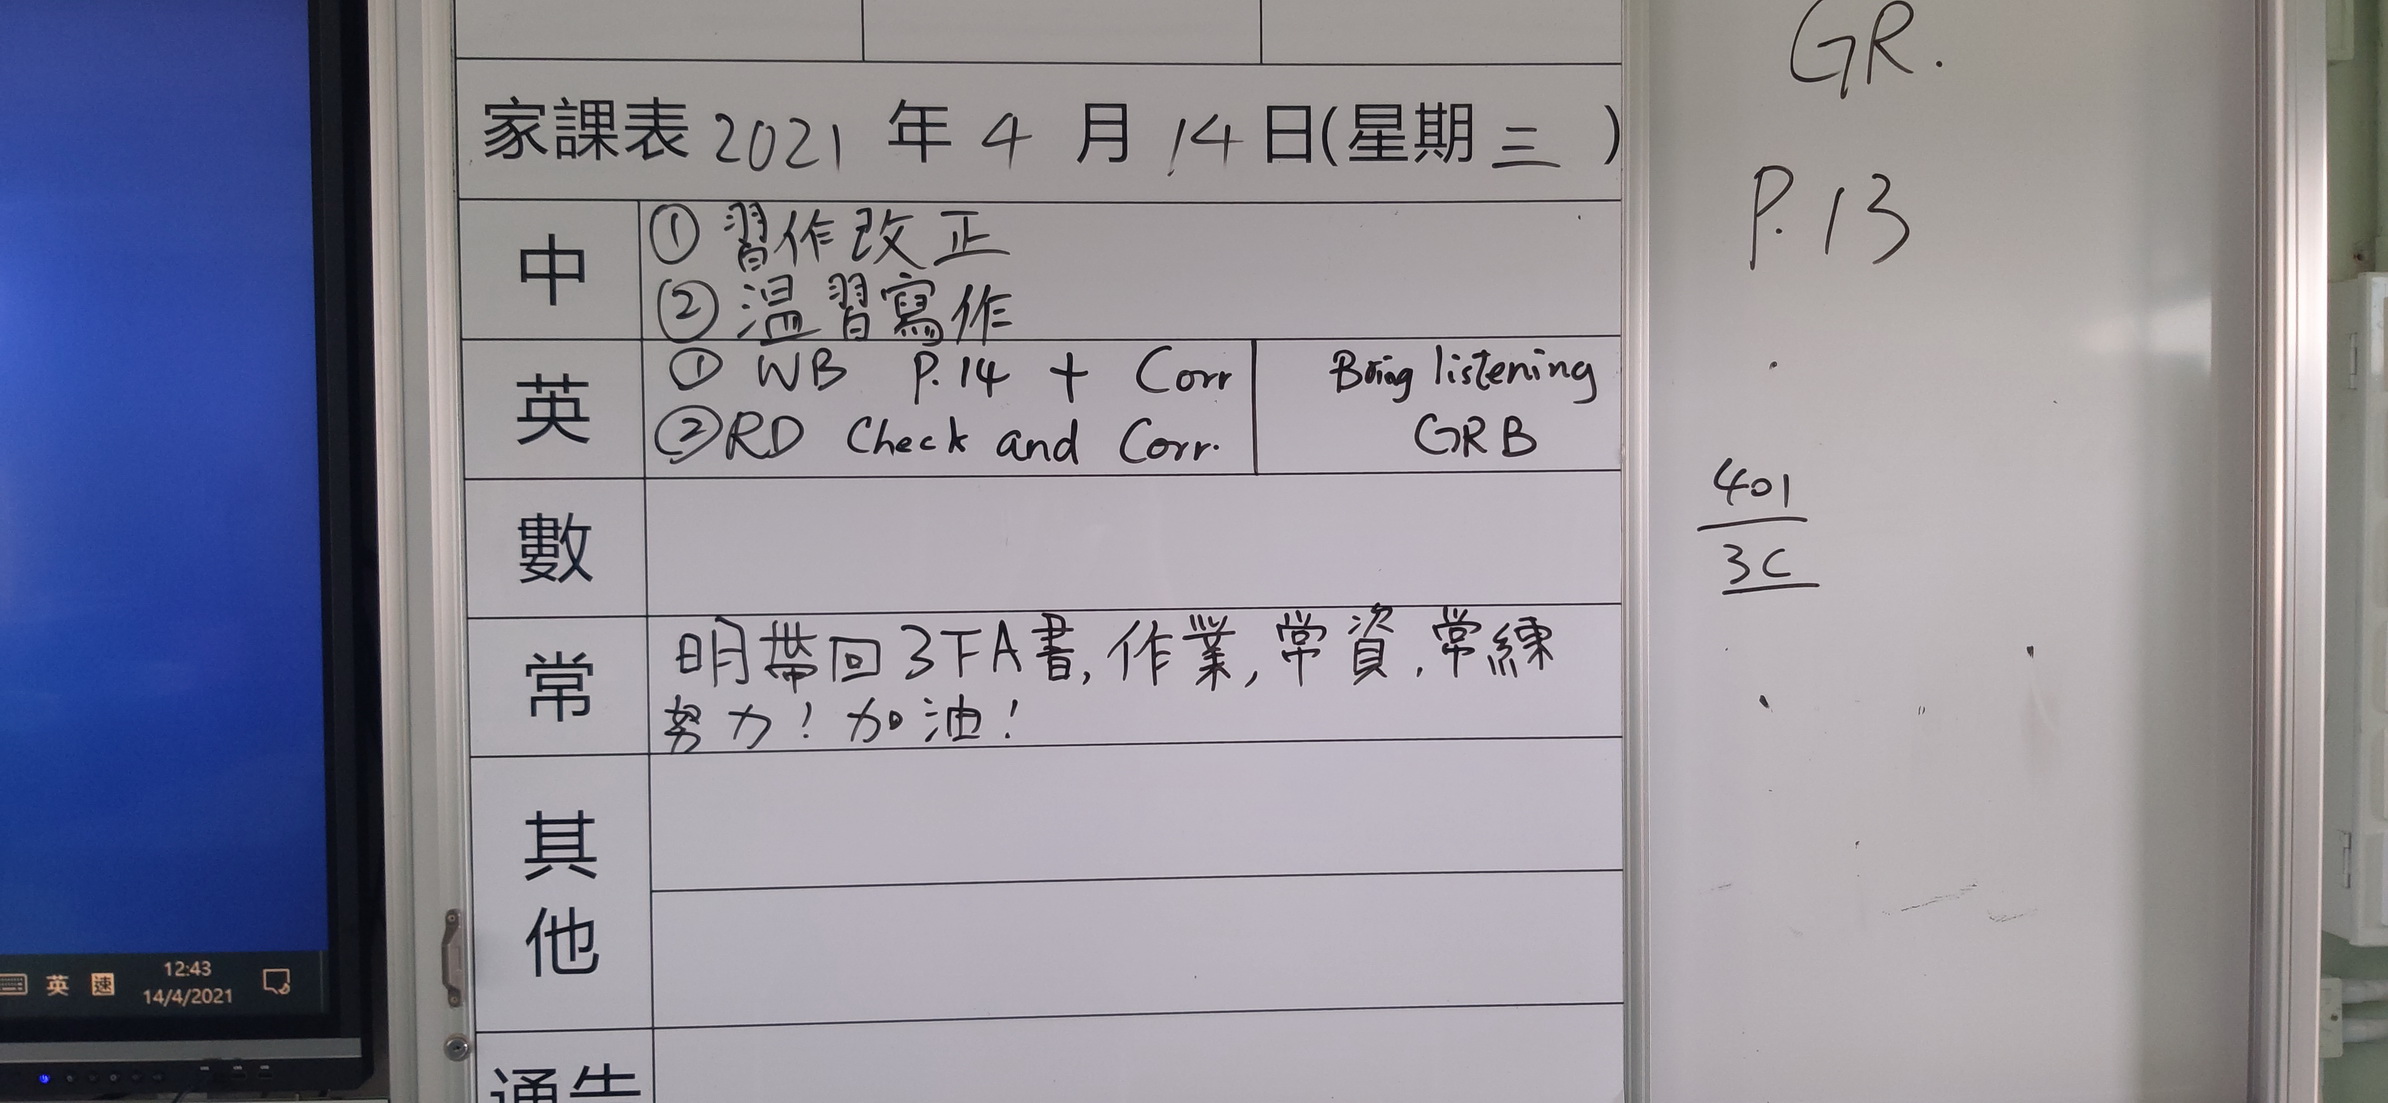 家課表 2021 年 4 月 14 日(星期 三 )
中
① 習作改正
② 温習寫作
英
① WB P.14 + Corr
② RD Check and Corr.
Bring listening
GRB
數
常
明帶回3下A書, 作業, 常資, 常練
努力! 加油!
其他
通告
GR.
P.13
401
3C
英 速
12:43
14/4/2021